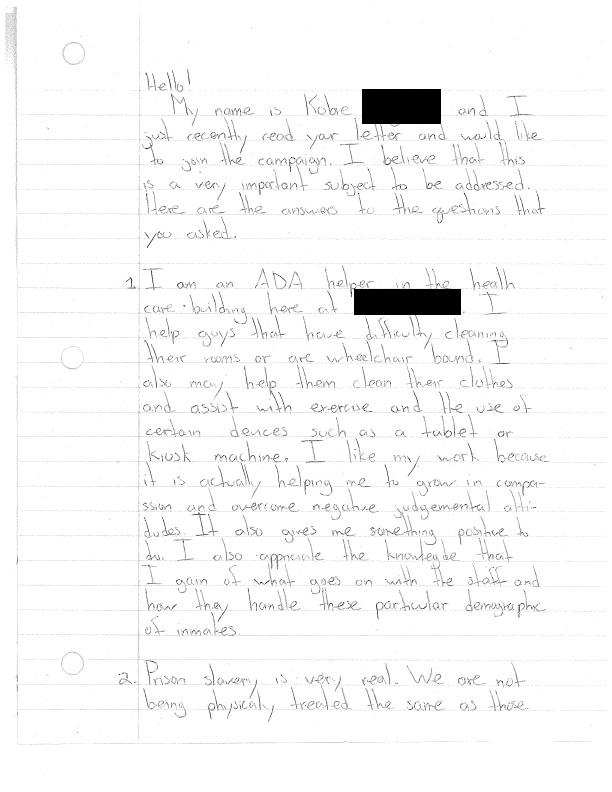 Hello!
My name is Kobie and I
just recently read your letter and would like
to join the campaign. I believe that this
is a very important subject to be addressed.
Here are the answers to the questions that
you asked.
1. I am an ADA helper in the health
care building here at . I
help guys that have difficulty cleaning
their rooms or are wheelchair bound. I
also may help them clean their clothes
and assist with exercise and the use of
certain devices such as a tablet or
kiosk machine. I like my work because
it is actually helping me to grow in compa-
ssion and overcome negative judgemental atti-
dudes. It also gives me something positive to
do. I also appriciate the knowlegde that
I gain of what goes on with the staff and
how they handle these particular demographic
of inmates.
2. Prison slavery is very real. We are not
being physicaly treated the same as those